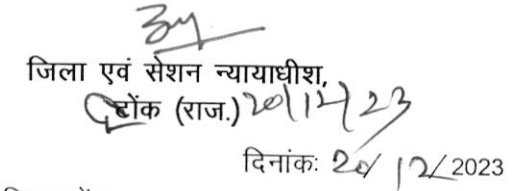 जिला एवं सेशन न्यायाधीश,
टोंक (राज.) 20/12/23
दिनांक: 20/12/2023